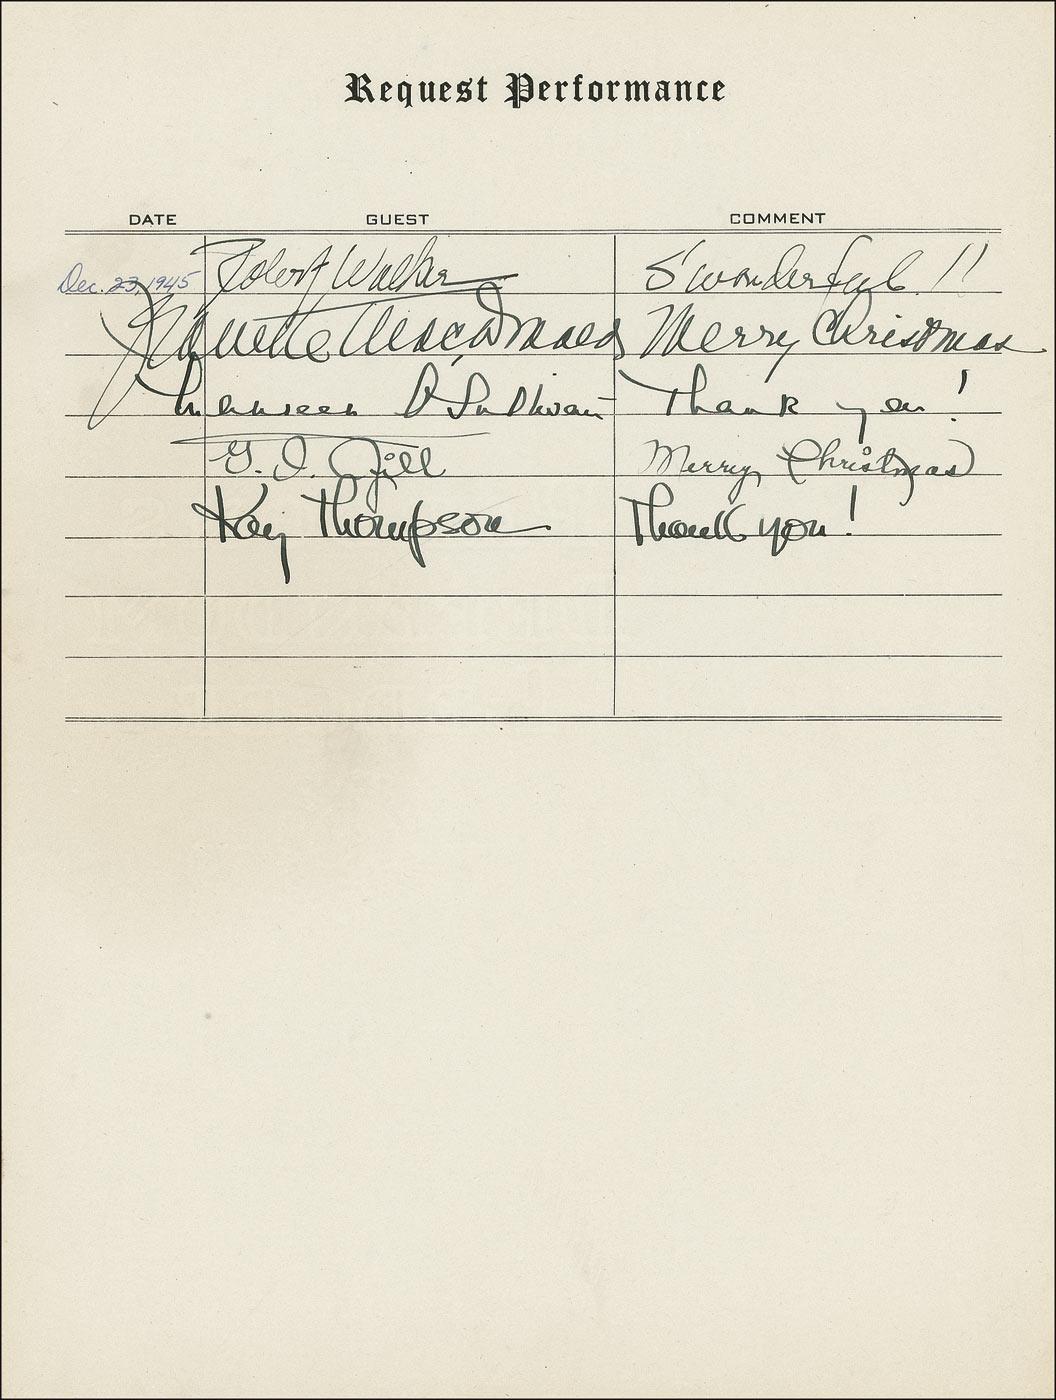 Request Performance
DATE GUEST COMMENT
Dec. 23, 1945 Robert Walker S'wonderful!!
Jeanette MacDonald Merry Christmas
Maureen O'Sullivan Thank you!
G. I. Jill Merry Christmas
Kay Thompson Thank you!